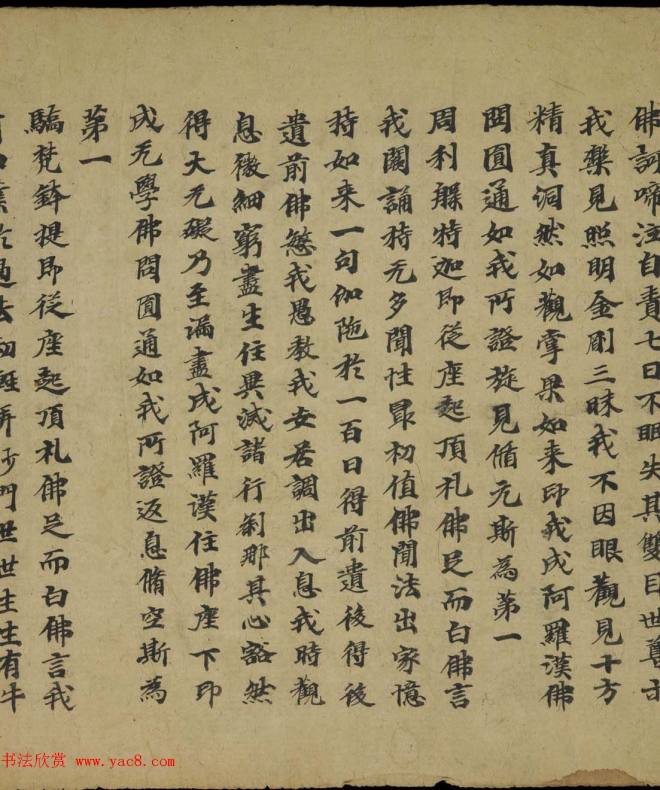 佛訶啼泣自責七日不眠失其雙目世尊示
我樂見照明金剛三昧我不因眼觀見十方
精真洞然如觀掌果如来印我成阿羅漢佛
問圓通如我所證旋見循元斯為第一
周利槃特迦即從座起頂礼佛足而白佛言
我闕誦持无多聞性最初值佛聞法出家憶
持如来一句伽陁於一百日得前遺後得後
遺前佛愍我愚教我安居調出入息我時觀
息微細窮盡生住異滅諸行刹那其心豁然
得大无礙乃至漏盡成阿羅漢住佛座下印
成无學佛問圓通如我所證返息脩空斯為
第一
驕梵鉢提即從座起頂礼佛足而白佛言我
口業於過去劫輕弄沙門世世生生有牛
书法欣赏 www.yac8.com